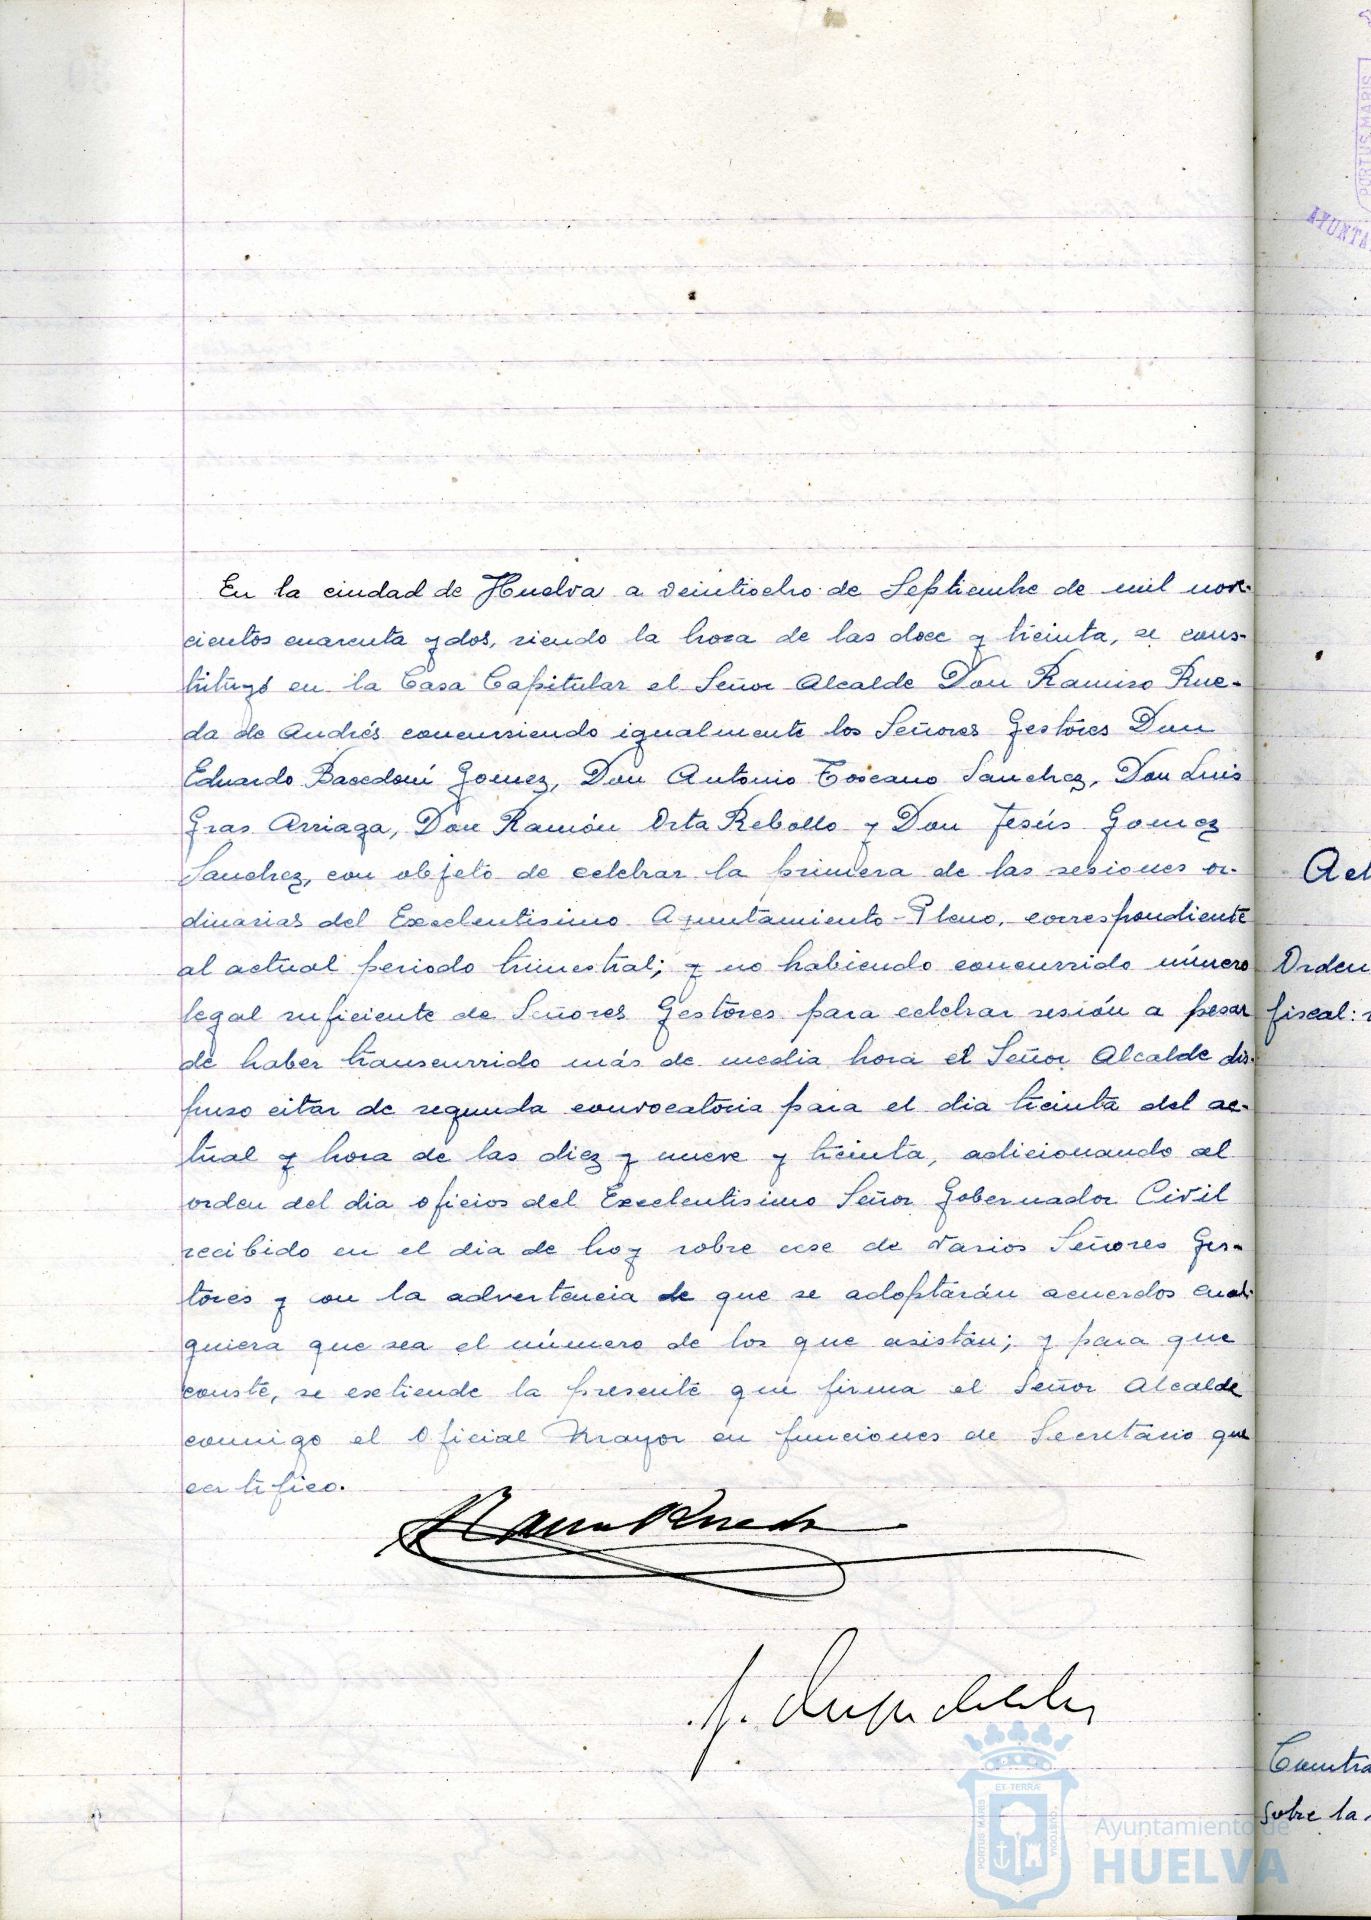 En la ciudad de Huelva a veintiocho de Septiembre de mil nove-
cientos cuarenta y dos, siendo la hora de las doce y treinta, se cons-
tituyó en la Casa Capitular el Señor Alcalde Don Ramiro Rue-
da de Andrés concurriendo igualmente los Señores Gestores Don
Eduardo Bacedoní Gomez, Don Antonio Toscano Sanchez, Don Luis
Gras Arriaga, Don Ramón Orta Rebollo y Don Jesús Gomez
Sanchez, con objeto de celebrar la primera de las sesiones or-
dinarias del Excelentisimo Ayuntamiento-Pleno, correspondiente
al actual periodo trimestral; y no habiendo concurrido número
legal suficiente de Señores Gestores para celebrar sesión a pesar
de haber transcurrido más de media hora el Señor Alcalde dis-
puso citar de segunda convocatoria para el dia treinta del ac-
tual y hora de las diez y nueve y treinta, adicionando al
orden del dia oficios del Excelentisimo Señor Gobernador Civil
recibido en el dia de hoy sobre cese de varios Señores Ges-
tores y con la advertencia de que se adoptarán acuerdos cual-
quiera que sea el número de los que asistan; y para que
conste, se extiende la presente que firma el Señor Alcalde
conmigo el Oficial Mayor en funciones de Secretario que
certifico.
Ramiro Rueda
PORTUS MARIS
AYUNTA
Act
Orden
fiscal:
Contra
Sobre la
PORTUS MARIS
ET TERRÆ
CUSTODIA
Ayuntamiento de
HUELVA